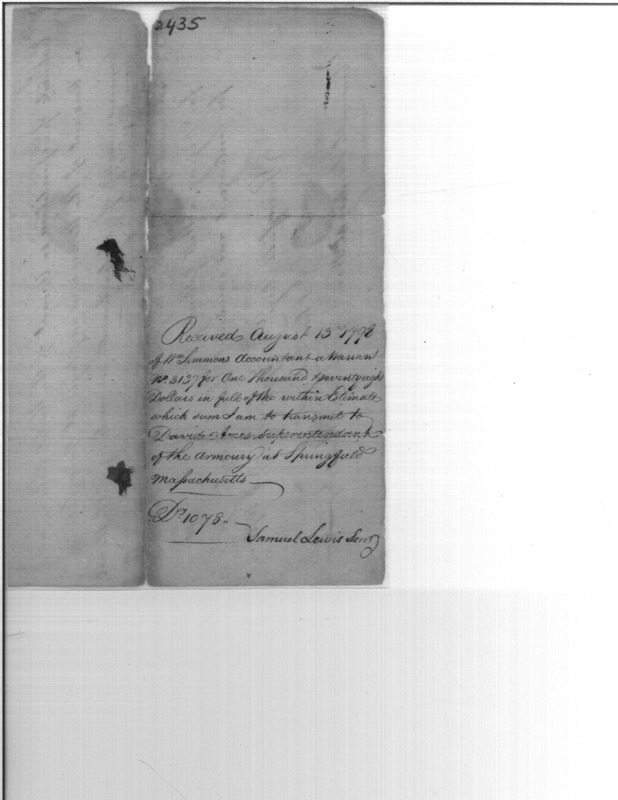 2435
Received August 13th 1798
of Wm Simmons Accountant a Warrant
No. 3137 for One Thousand & seventy eight
Dollars in full of the within Estimate
which sum I am to transmit to
David Ames Superintendant
of the Armoury at Springfield
Massachusetts
Ds. 1078
Samuel Lewis Senr